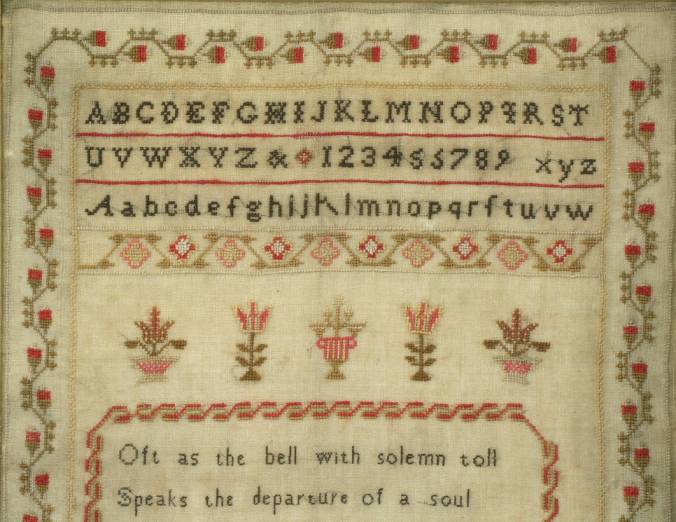 ABCDEFGHIJKLMNOPQRST
UVWXYZ & 123456789 xyz
Aabcdefghijklmnopqrſtuvw
Oft as the bell with solemn toll
Speaks the departure of a soul